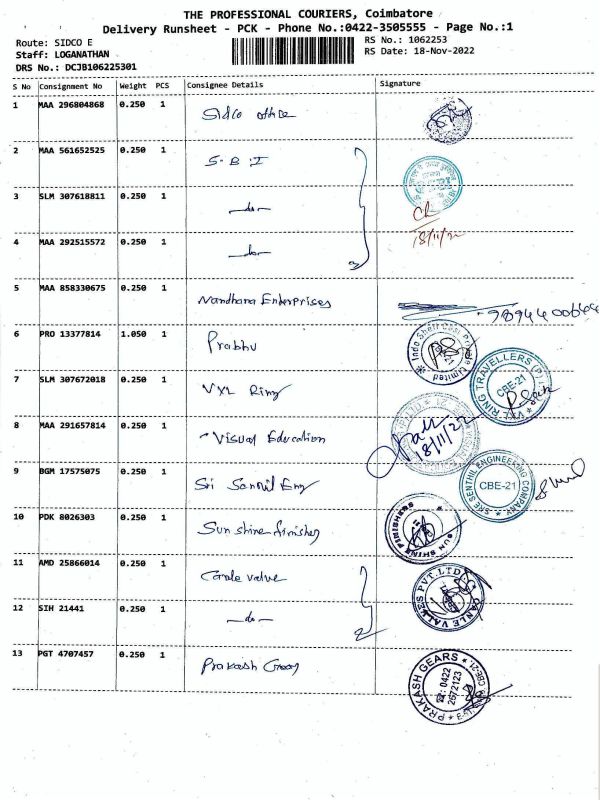 THE PROFESSIONAL COURIERS, Coimbatore
Delivery Runsheet - PCK - Phone No.:0422-3505555 - Page No.:1
Route: SIDCO E
Staff: LOGANATHAN
DRS No.: DCJB106225301
RS No.: 1062253
RS Date: 18-Nov-2022
S No Consignment No Weight PCS Consignee Details Signature
1 MAA 296804868 0.250 1 Sidco office
2 MAA 561652525 0.250 1 S.B.I
3 SLM 307618811 0.250 1 —do—
18/11/22
4 MAA 292515572 0.250 1 —do—
5 MAA 858330675 0.250 1 Nandhana Enterprises
6 PRO 13377814 1.050 1 Prabhu
Indo Shell Cast Private Limited
7 SLM 307672018 0.250 1 VXL Ring
VXL RING TRAVELLERS (P) CBE-21
8 MAA 291657814 0.250 1 Visual Education
18/11/22
9 BGM 17575075 0.250 1 Sri Senthil Eng
SREE SENTHIL ENGINEERING COMPANY CBE-21
10 PDK 8026303 0.250 1 Sunshine finishers
SUN SHINE FINISHERS
11 AMD 25866014 0.250 1 Carle valve
CARLE VALVES PVT.LTD.
12 SIH 21441 0.250 1 —do—
13 PGT 4707457 0.250 1 Prakash Gears
PRAKASH GEARS
☎: 0422
2672123